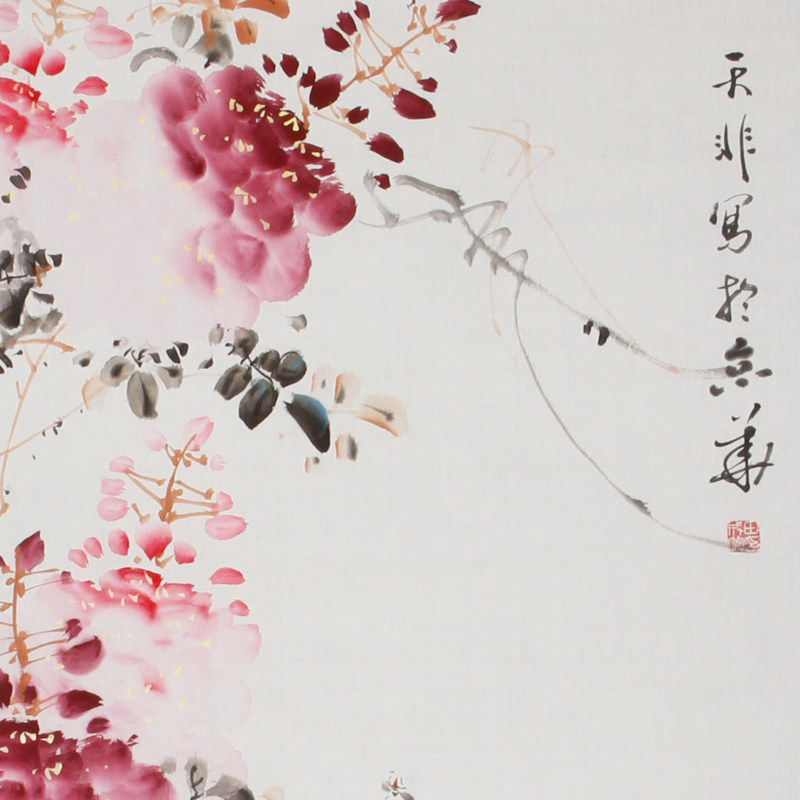 天非寫於京華